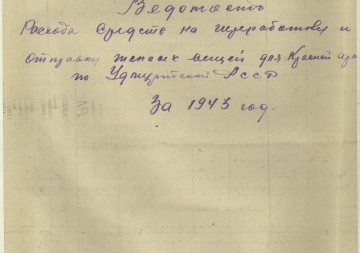 Ведомость
Расхода средств на переработку и
отправку теплых вещей для Красной Ар
по Удмуртской АССР
За 1943 год.